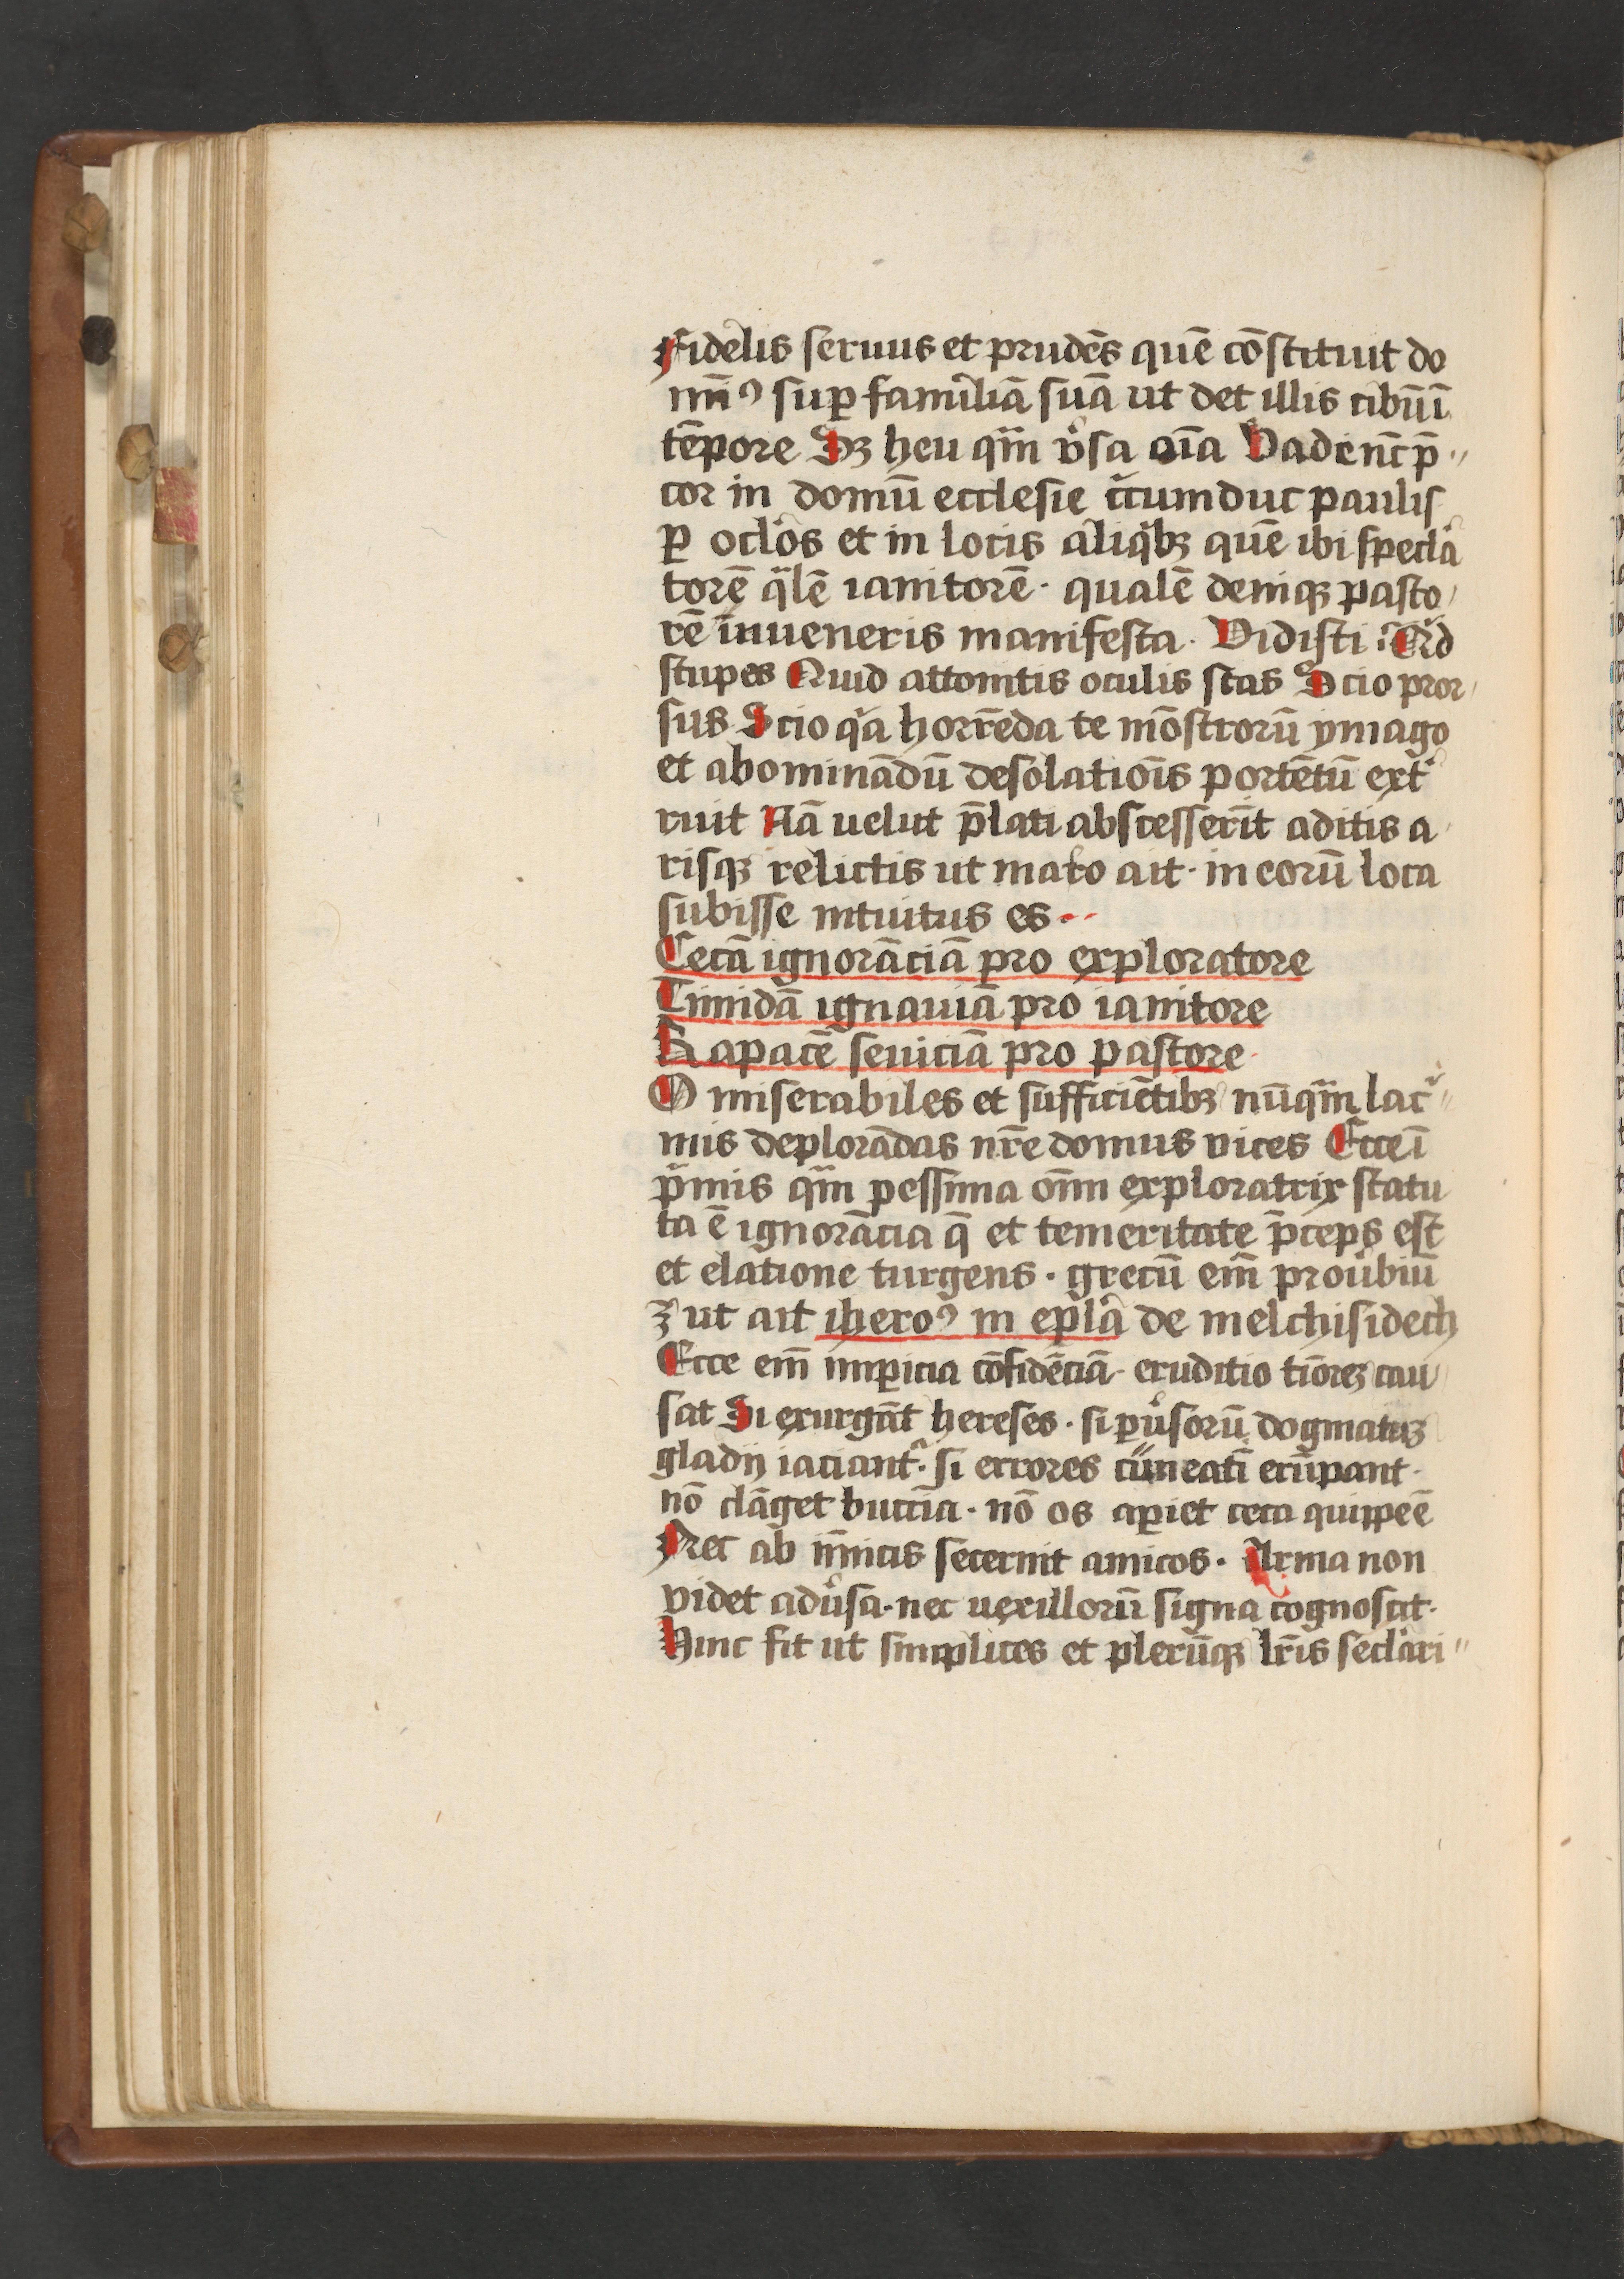 Fidelis seruus et prudēs quē cōstituit do
mīꝰ suꝑ familiā suā ut det illis cibū ī
tēpore Sꝫ heu qͣm v̓sa oīa Vade nūc p̄
cor in domū ecclesie circumduc paulisꝑ
ꝑ oclos et in locis aliqͥbꝫ quē ibi specla
torē qͣlē ianitorē · qualē deniqꝫ pasto
rē inueneris manifesta · Vidisti · Qͥd
stupes Quid attonitis oculis stas Scio pror
sus Scio qͥa horrēda te mōstrorū ymago
et abominādū desolatiōis portētū ext̓
ruit Nā uelut p̄lati abscesserīt aditis a
risqꝫ relictis ut maro ait · in eorū loca
subisse intuitus es ·
Cecā ignorāciā pro exploratore
Timidā ignauiā pro ianitore
Rapacē seuiciā pro pastore ·
O miserabiles et sufficiētibꝫ nūqͣm lacͥ
mis deplorādas nr̄e domus vices Ecce ī
pͥmis qͣm pessima oīm exploratrix statu
ta ē ignorācia q̄ et temeritate p̄ceps est
et elatione turgens · grecū em̄ prou̓biū
ꝫ ut ait iheroꝰ in epl̄a de melchisidech
Ecce em̄ imꝑicia cōfidēciā · eruditio tīorēꝫ cau
sat Si exurgāt hereses · si ꝑu̓sorū dogmatuꝫ
gladij iaciant᷑ · si errores cuneatī erūpant ·
nō clāget buccīa · nō os aꝑiet ceca quippe ē
Nec ab inīicis secernit amicos · Arma non
videt adu̓sa · nec uexillorū signa cognoscit ·
Hinc fit ut simplices et plerūqꝫ lr̄is seclari